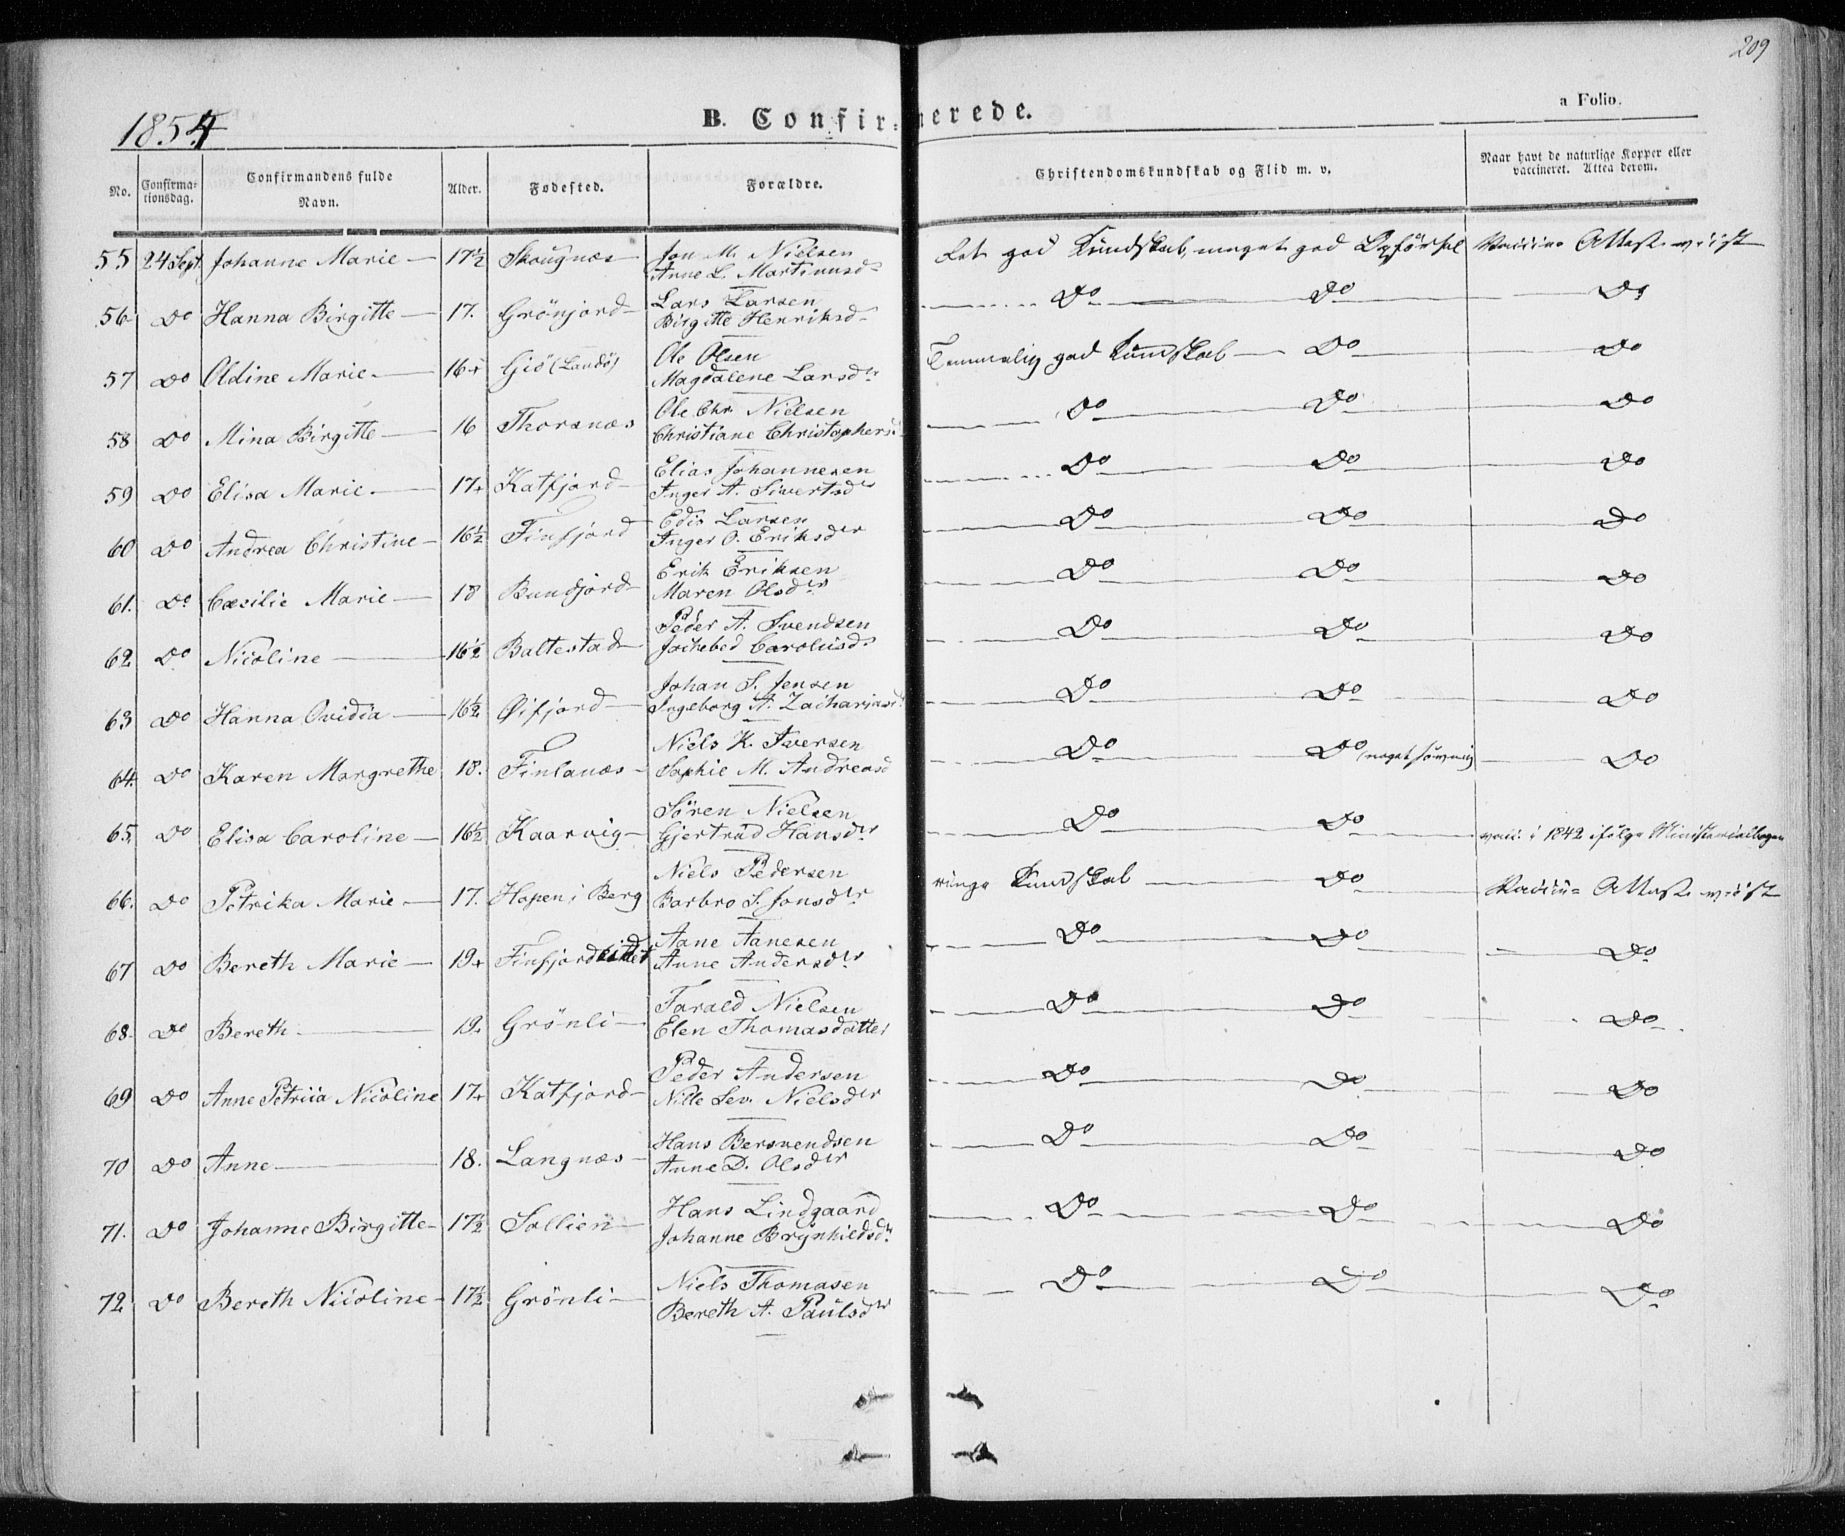 209
1854
B. Confir- merede.
a Folio.
No.
Confirma-
tionsdag.
Confirmandens fulde
Navn.
Alder.
Fødested.
Forældre.
Christendomskundskab og Flid m. v.
Naar havt de naturlige Kopper eller
vaccineret. Attest derom.
55 24 Sept. Johanne Marie — 17½ Skougnæs Jon M. Nielsen
Anne L. Martinusd. god Kundskab, meget god Opførsel Vaccine Attest viist
56 Do Hanna Birgitte — 17. Grönjord Lars Larsen
Birgitte Henriksd. Do Do Do
57 Do Oldine Marie — 16 Giö (Landö) Ole Olsen
Magdalene Larsdr Temmelig god Kundskab — Do Do
58 Do Mina Birgitte — 16 Thorsnæs Ole Chr. Nielsen
Christiane Christophersd. Do Do Do
59 Do Elisa Marie — 17 Katfjord Elias Johannesen
Inger A. Sivertsdr Do Do Do
60 Do Andrea Christine — 16½ Finfjord Edis Larsen
Inger O. Eriksdr Do Do Do
61. Do Cæsilie Marie — 18 Bundjord Erik Eriksen
Maren Olsdr Do Do Do
62 Do Nicoline — 16½ Baltestad Peder A. Svendsen
Jochebed Carolusd. Do Do Do
63 Do Hanna Ovidia — 16½ Øifjord Johan S. Jensen
Ingeborg A. Zachariasd. Do Do Do
64. Do Karen Margrethe 18. Finlanæs Niels K. Iversen
Sophie M. Andreasd Do Do (noget søvnig Do
65. Do Elisa Caroline — 16½ Kaarvig Sören Nielsen
Gjertrud Hansdr Do Do vacc. i 1842 ifølge Ministerialbogen
66. Do Petrika Marie — 17. Hopen i Berg Niels Pedersen
Barbro S. Jonsdr ringe Kundskab — Do Vaccine Attest viist
67 Do Bereth Marie — 19 Finfjord Aane Aanesen
Anne Andersdr Do Do Do
68. Do Bereth — 19. Grönli Tarald Nielsen
Elen Thomasdatter Do Do Do
69 Do Anne Petricia Nicoline 17 Katfjord Peder Andersen
Nille Lev. Nielsdr Do Do Do
70 Do Anne — 18. Langnæs Hans Bersvendsen
Anne D. Olsdr Do Do Do
71. Do Johanne Birgitte — 17½ Sollien Hans Lindgaard
Johanne Brynhildsdr Do Do Do
72 Do Bereth Nicoline — 17½ Grönli Niels Thomasen
Bereth A. Paulsdr Do Do Do